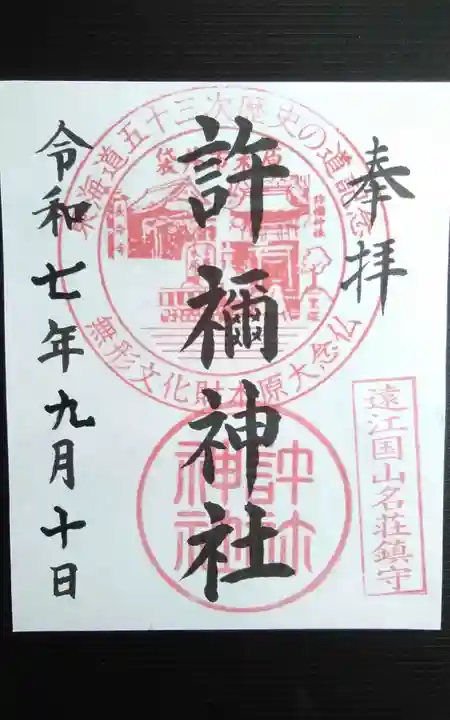 奉拝
許禰神社
令和七年九月十日
東海道五十三次歴史の道記念
無形文化財本原大念仏
遠江国山名荘鎮守